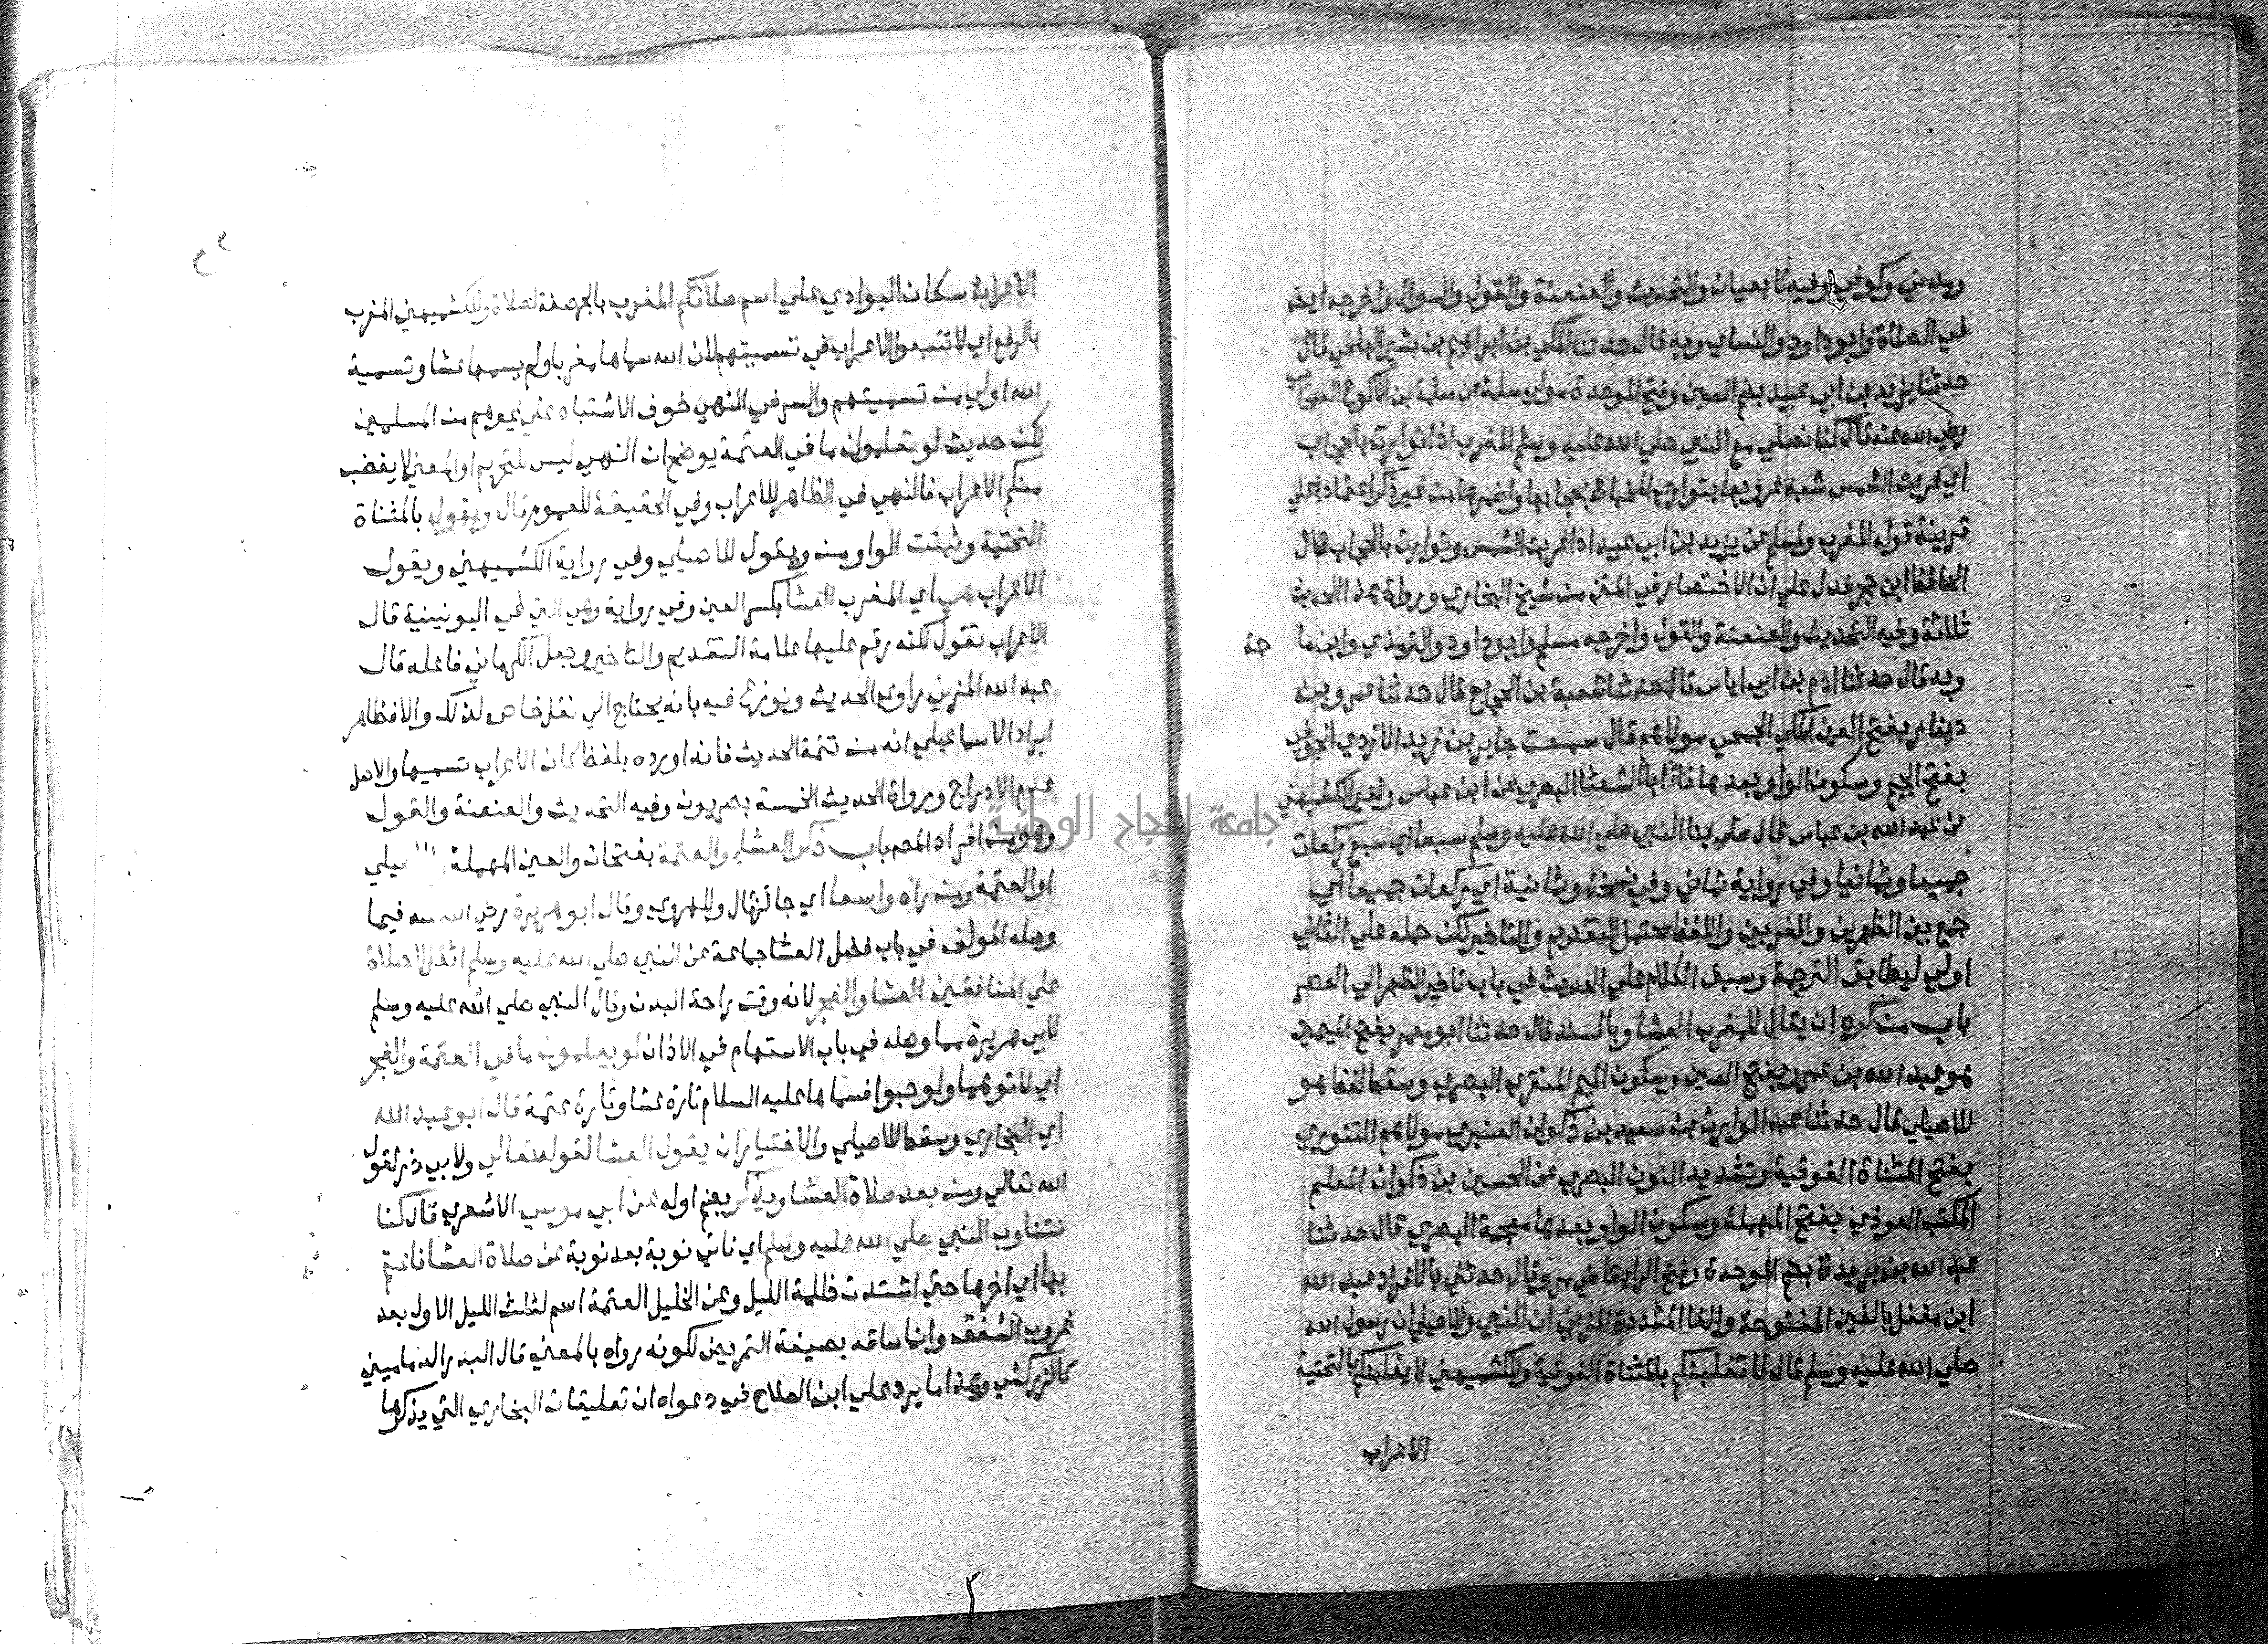 ومدني وكوفي وفيه تابعيان والتحديث والعنعنة والقول والسوال واخرجه ايضا
في الصلاة وابو داود والنساي وبه قال حدثنا المكي بن ابراهيم بن بشير البلخي قال
حدثنا يزيد بن ابي عبيد بضم العين وفتح الموحدة مولى سلمة عن سلمة بن الاكوع الصحابي
رضي الله عنه قال كنا نصلي مع النبي صلي الله عليه وسلم المغرب اذا توارت بالحجاب
اي غربت الشمس شبه غروبها بتواري المخباة بحجابها واضمرها من غير ذكر اعتمادا علي
قرينة قوله المغرب ولمسلم عن يزيد بن ابي عبيد اذا غربت الشمس وتوارت بالحجاب قال
الحافظ ابن حجر فدل علي ان الاختصار في المتن من شيخ البخاري ورواة هذا الحديث
ثلاثة وفيه التحديث والعنعنة والقول واخرجه مسلم وابو داود والترمذي وابن ما جه
وبه قال حدثنا ادم بن ابي اياس قال حدثنا شعبة بن الحجاج قال حدثنا عمرو بن
دينار بفتح العين المكي الجمحي مولاهم قال سمعت جابر بن زيد الازدي الجوفي
بفتح الجيم وسكون الواو بعدها فا ابا الشعثا البصري عن ابن عباس ولغير الكشميهني
عن عبد الله بن عباس قال صلي بنا النبي صلي الله عليه وسلم سبعا اي سبع ركعات
جميعا وثمانيا وفي رواية ثمان وفي نسخة وثمانية اي ركعات جميعا اي
جمع بين الظهرين والمغربين واللفظ محتمل للتقديم والتاخير لكن حمله علي الثاني
اولي ليطابق الترجمة وسبق الكلام علي الحديث في باب تاخير الظهر الي العصر
باب من كره ان يقال للمغرب العشا وبالسند قال حدثنا ابو معمر بفتح الميمين
هو عبد الله بن عمرو بفتح العين وسكون الميم المنقري البصري وسقط لفظ هو
للاصيلي قال حدثنا عبد الوارث بن سعيد بن ذكوان العنبري مولاهم التنوري
بفتح المثناة الفوقية وتشديد النون البصري عن الحسين بن ذكوان المعلم
المكتب العوذي بفتح المهملة وسكون الواو بعدها معجمة البصري قال حدثنا
عبد الله بن بريدة بضم الموحدة وفتح الرا قاضي مرو قال حدثني بالافراد عبد الله
ابن مغفل بالغين المفتوحة والفا المشددة المزني ان النبي وللاصيلي ان رسول الله
صلي الله عليه وسلم قال لا تغلبنكم بالمثناة الفوقية وللكشميهني لا يغلبنكم بالتحتية
الاعراب
الاعراب سكان البوادي علي اسم صلاتكم المغرب بالجر صفة لصلاة وللكشميهني المغرب
بالرفع اي لا تتبعوا الاعراب في تسميتهم لان الله سماها مغربا ولم يسمها عشا وتسمية
الله اولي من تسميتهم والسر في النهي خوف الاشتباه علي غيرهم من المسلمين
لكن حديث لو تعلمون ما في العتمة يوضح ان النهي ليس للتحريم او المعني لا يغضب
منكم الاعراب فالنهي في الظاهر للاعراب وفي الحقيقة للعموم قال ويقول بالمثناة
التحتية وثبتت الواو من ويقول للاصيلي وفي رواية الكشميهني ويقول
الاعراب هي اي المغرب العشا بكسر العين وفي رواية وهي التي في اليونينية قال
الاعراب تقول لكنه رقم عليها علامة التقديم والتاخير وجعل الكرماني فاعله قال
عبد الله المزني راوي الحديث ونوزع فيه بانه يحتاج الي نقل خاص لذلك والا فظاهر
ايراد الاسماعيلي انه من تتمة الحديث فانه اورده بلفظ فان الاعراب تسميها والاصل
عدم الادراج ورواة الحديث الخمسة بصريون وفيه التحديث والعنعنة والقول
وهو من افراد المص باب ذكر العشا والعتمة بفتحات والعين المهملة
او العتمة ومن راه واسعا اي جائزا قال وللهروي وقال ابو هريرة رضي الله عنه فيما
وصله المولف في باب فضل العشا جماعة عن النبي صلي الله عليه وسلم اثقل الصلاة
علي المنافقين العشا والفجر لانه وقت راحة البدن وقال النبي صلي الله عليه وسلم
لابي هريرة مما وصله في باب الاستهام في الاذان لو يعلمون ما في العتمة والفجر
اي لاتوهما ولو حبوا فسماها عليه السلام تارة عشا وتارة عتمة قال ابو عبد الله
اي البخاري وسقط للاصيلي والاختيار ان يقول العشا لقوله تعالي ولابي ذر لقول
الله تعالي ومن بعد صلاة العشا ويذكر بضم اوله عن ابي موسي الاشعري قال كنا
نتناوب النبي صلي الله عليه وسلم اي ناتي نوبة بعد نوبة عن صلاة العشا فاعتم
بها اي اخرها حتي اشتدت ظلمة الليل وعن الخليل العتمة اسم لثلث الليل الاول بعد
غروب الشفق وانما ساقه بصيغة التمريض لكونه رواه بالمعني قال البدر الدماميني
كالزركشي وهذا ما يرد علي ابن الصلاح في دعواه ان تعليقات البخاري التي يذكرها
جامعة النجاح الوطنية